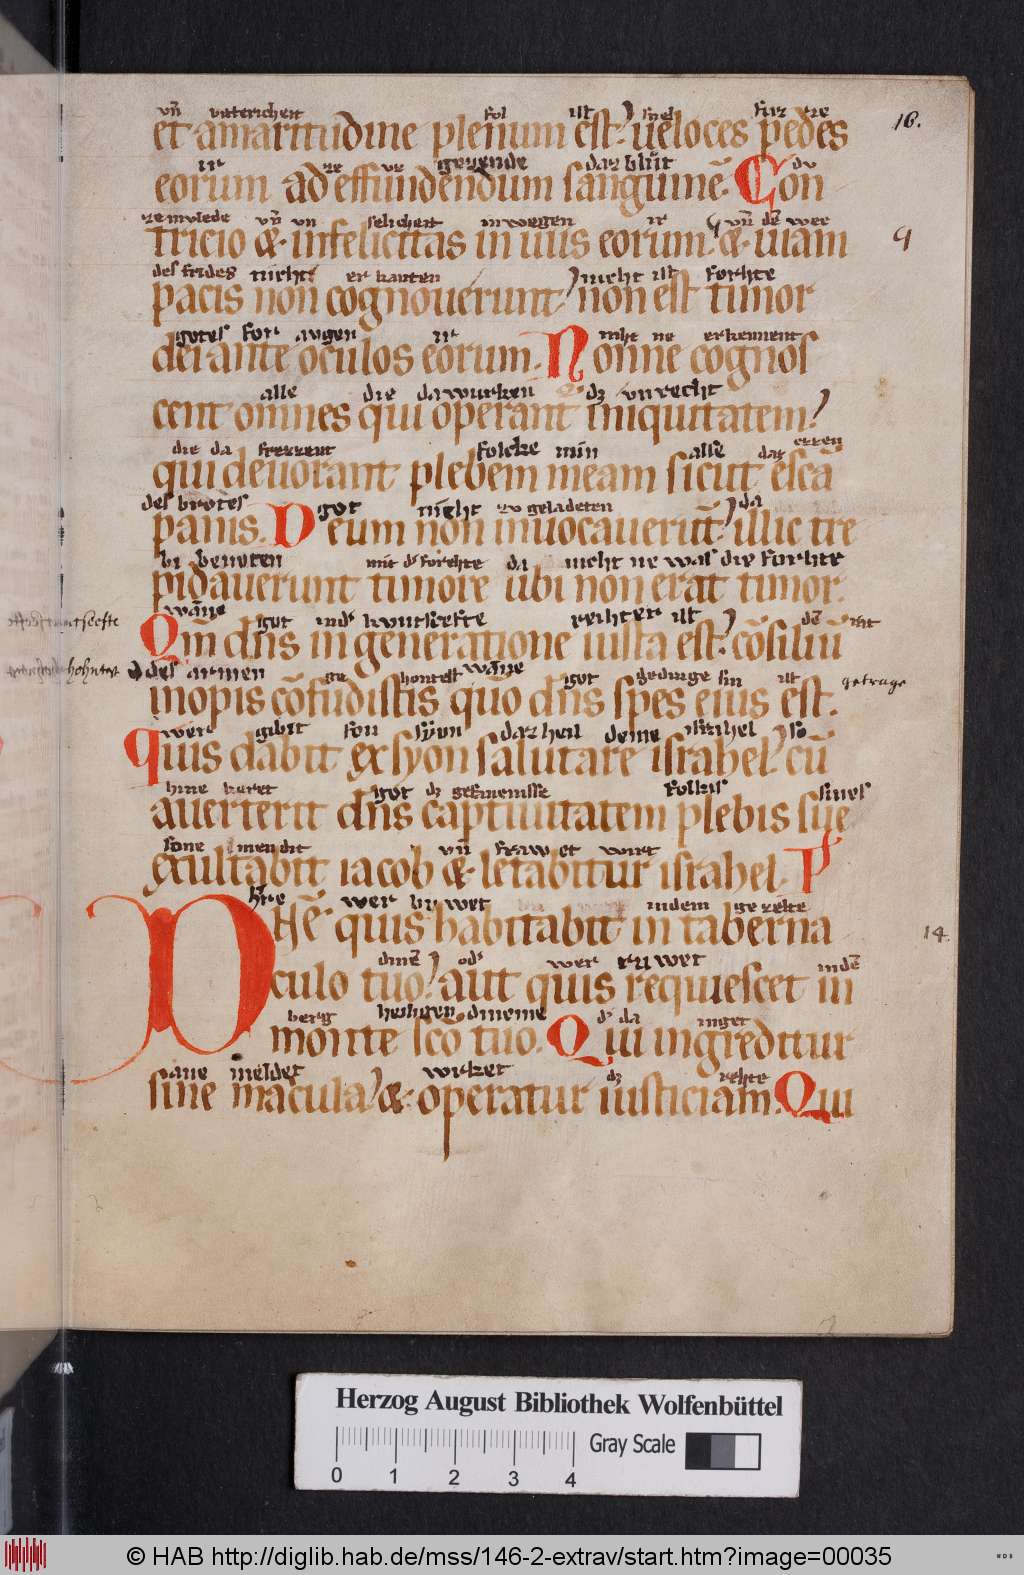 vn̄ bitterichett fol ist snel fuz ze
et amaritudine plenum est. ueloces pedes 16.
ir ze ver gezende daz blůt du
eorum ad effundendum sanguinē. Con
ze mulede vn̄ vn selichett in wegen ir vn̄ dē wec
tricio & infelicitas in uiis eorum & uiam
des frides nicht er kanten nicht ist forhte
pacis non cognouerunt non est timor
gotes for augen ir niht ne erkennent
dei ante oculos eorum. Nonne cognos
alle die da wurken dz vnrecht
cent omnes qui operant iniquitatem
die da frezzent folcke min alse daz ezzen
qui deuorant plebem meam sicut escā
des brotes got nicht zu geladeten da
panis. Deum non inuocauerūt. illic tre
bi beuoten mit forchte da nicht ne was die forhte
pidauerunt timore ubi non erat timor.
wāne got kunscefte rehter ist dē
Qm̄ dn̄s in generatione iusta est. cōsiliū
des armen ge hontest wāne got gedinge sin ist getrage
inopis cōfudistis quō dn̄s spes eius est.
wer gibit fon syon daz heil deme israhel so
Quis dabit ex syon salutare israhel. cū
hine keret got dz gefencnisse folkis sines
auerterit dn̄s captiuitatem plebis sue
sone mendit vn̄ frawet wirt
exultabit iacob & letabitur israhel. P̄
h̄re wer bu wet indem gezelte
DHē quis habitabit in taberna 14.
dinē od' wer ruwet indē
culo tuo. aut quis requiescet in
berg heiligen dineme d' da inget
monte sc̄o tuo. Qui ingreditur
ane meldet wirket dz rehte
sine macula & operatur iusticiam. Qui
Herzog August Bibliothek Wolfenbüttel
0 1 2 3 4 Gray Scale
© HAB http://diglib.hab.de/mss/146-2-extrav/start.htm?image=00035